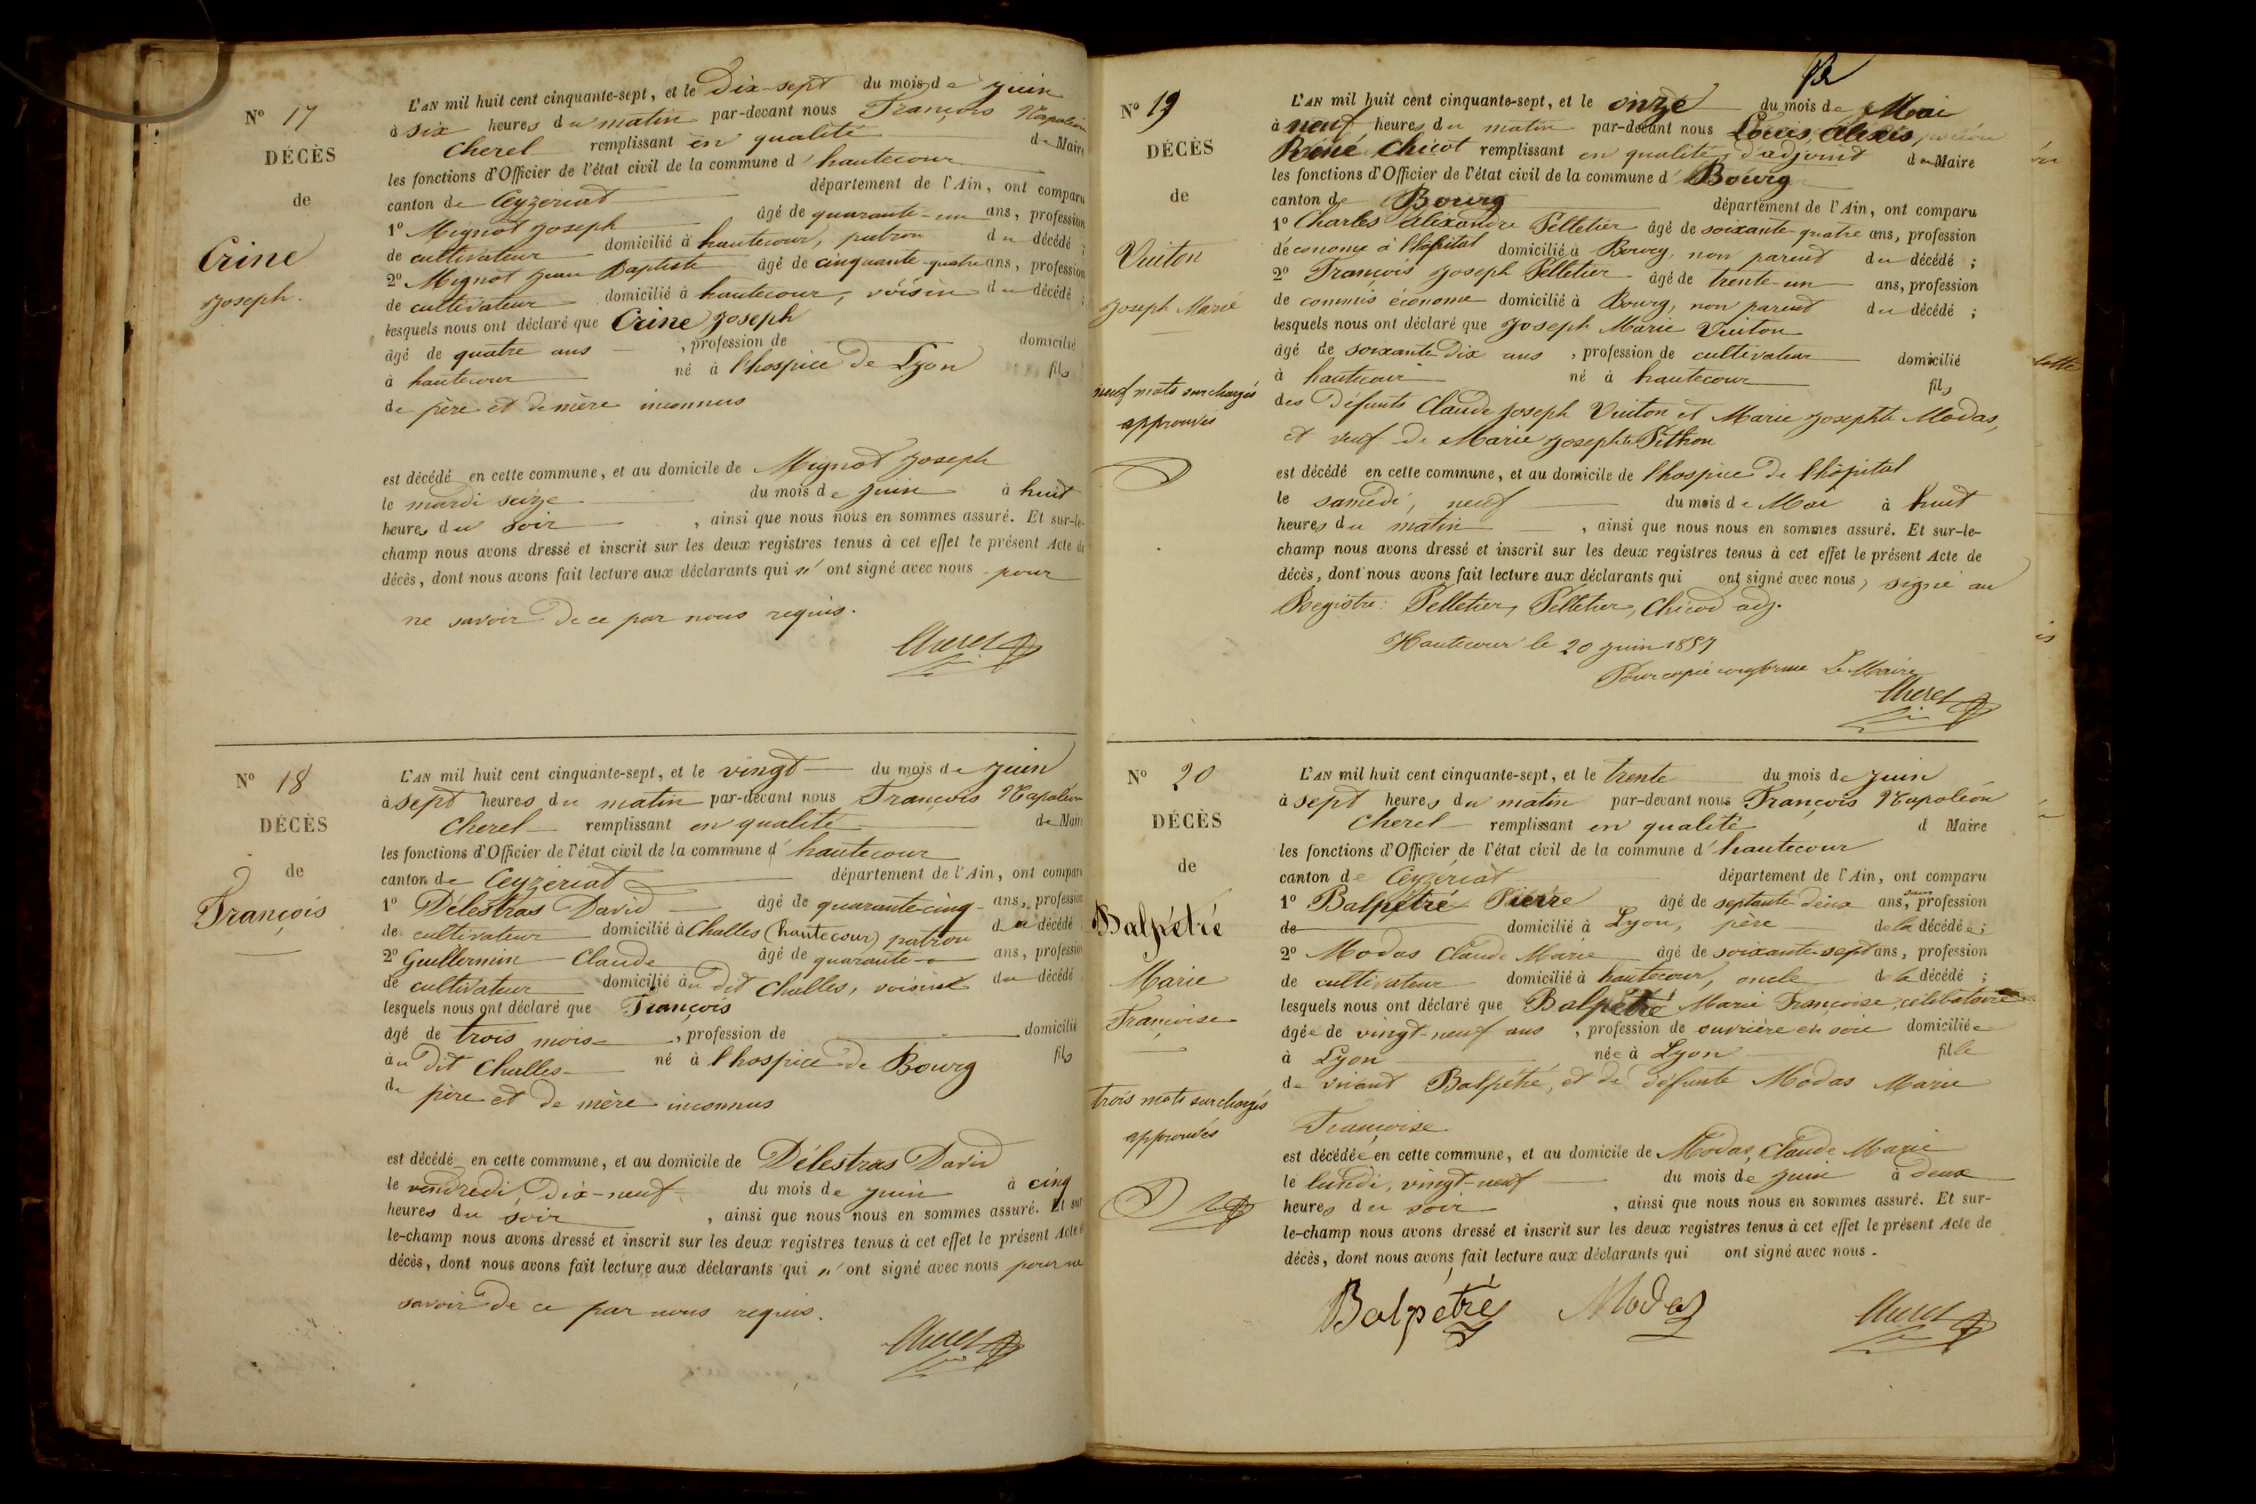 Nº 17
DÉCÈS
de
Crine
Joseph.
L'AN mil huit cent cinquante-sept, et le Dix-sept du mois de juin
à six heures du matin par-devant nous François Napoléon
Cherel remplissant en qualité de Maire
les fonctions d'Officier de l'état civil de la commune d'hautecour
canton de Ceyzeriat département de l'Ain, ont comparu
1º Mignot Joseph âgé de quarante-un ans, profession
de cultivateur domicilié à hautecour, patron du décédé ;
2º Mignot Jean Baptiste âgé de cinquante-quatre ans, profession
de cultivateur domicilié à hautecour, voisin du décédé ;
lesquels nous ont déclaré que Crine Joseph
âgé de quatre ans , profession de domicilié
à hautecour né à l'hospice de Lyon fils
de père et de mère inconnus
est décédé en cette commune, et au domicile de Mignot Joseph
le mardi seize du mois de juin à huit
heures du soir , ainsi que nous nous en sommes assuré. Et sur-le-
champ nous avons dressé et inscrit sur les deux registres tenus à cet effet le présent Acte de
décès, dont nous avons fait lecture aux déclarants qui n'ont signé avec nous pour
ne savoir de ce par nous requis.
Cherel
Nº 18
DÉCÈS
de
François
L'AN mil huit cent cinquante-sept, et le vingt du mois de juin
à sept heures du matin par-devant nous François Napoléon
Cherel remplissant en qualité de Maire
les fonctions d'Officier de l'état civil de la commune d'hautecour
canton de Ceyzeriat département de l'Ain, ont comparu
1º Délestras David âgé de quarante-cinq ans, profession
de cultivateur domicilié à Challes (hautecour) patron du décédé
2º Guillermin Claude âgé de quarante ans, profession
de cultivateur domicilié au dit Challes, voisin du décédé
lesquels nous ont déclaré que François
âgé de trois mois , profession de domicilié
au dit Challes né à l'hospice de Bourg fils
de père et de mère inconnus
est décédé en cette commune, et au domicile de Délestras David
le vendredi, dix-neuf du mois de juin à cinq
heures du soir , ainsi que nous nous en sommes assuré. Et sur
le-champ nous avons dressé et inscrit sur les deux registres tenus à cet effet le présent Acte de
décès, dont nous avons fait lecture aux déclarants qui n'ont signé avec nous pour ne
savoir de ce par nous requis.
Cherel
Nº 19
DÉCÈS
de
Vuiton
Joseph Marie
neuf mots surchargés
approuvés
L'AN mil huit cent cinquante-sept, et le onze du mois de Mai
à neuf heures du matin par-devant nous Louis, Alexis,
Réné Chicot remplissant en qualité d'adjoint du Maire
les fonctions d'Officier de l'état civil de la commune d Bourg
canton de Bourg département de l'Ain, ont comparu
1º Charles Alexandre Pelletier âgé de soixante-quatre ans, profession
d'économe à l'hôpital domicilié à Bourg, non parent du décédé ;
2º François Joseph Pelletier âgé de trente-un ans, profession
de commis économe domicilié à Bourg, non parent du décédé ;
lesquels nous ont déclaré que Joseph Marie Vuiton
âgé de soixante Dix ans , profession de cultivateur domicilié
à hautecour né à hautecour fils
des Défunts Claude Joseph Vuiton et Marie Josephte Modas,
et veuf de Marie Josephte Pithon
est décédé en cette commune, et au domicile de l'hospice de l'hôpital
le samedi, neuf du mois de Mai à huit
heures du matin , ainsi que nous nous en sommes assuré. Et sur-le-
champ nous avons dressé et inscrit sur les deux registres tenus à cet effet le présent Acte de
décès, dont nous avons fait lecture aux déclarants qui ont signé avec nous, signé au
Registre: Pelletier, Pelletier, Chicod adj.
Hautecour le 20 juin 1857
Pour copie conforme Le Maire
Cherel
Nº 20
DÉCÈS
de
Balpétré
Marie
Françoise
trois mots surchargés
approuvés
L'AN mil huit cent cinquante-sept, et le trente du mois de juin
à sept heures du matin par-devant nous François Napoléon
Cherel remplissant en qualité d Maire
les fonctions d'Officier de l'état civil de la commune d'hautecour
canton de Ceyzériat département de l'Ain, ont comparu
1º Balpétré Pierre âgé de septante deux ans, sans profession
de domicilié à Lyon, père de la décédée ;
2º Modas Claude Marie âgé de soixante-sept ans, profession
de cultivateur domicilié à hautecour, oncle de la décédé ;
lesquels nous ont déclaré que Balpétré Marie Françoise, célibataire
âgée de vingt-neuf ans , profession de ouvrière en soie domiciliée
à Lyon née à Lyon fille
de vivant Balpétré, et de défunte Modas Marie
Françoise
est décédée en cette commune, et au domicile de Modas, Claude Marie
le lundi, vingt-neuf du mois de juin à deux
heures du soir , ainsi que nous nous en sommes assuré. Et sur-
le-champ nous avons dressé et inscrit sur les deux registres tenus à cet effet le présent Acte de
décès, dont nous avons fait lecture aux déclarants qui ont signé avec nous.
Balpétré Modas Cherel